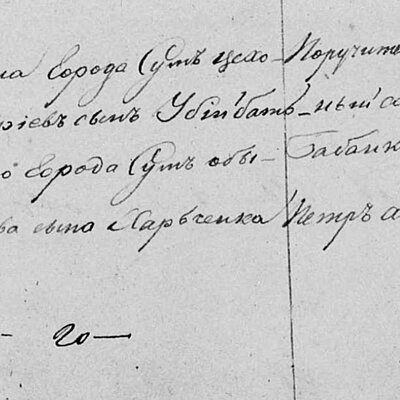 на города Сумъ цехо- Поручите
ѳіевъ сынъ Убійбатъ- ный со
о города Сумъ обы- Бабанк
ва сына Харьченка Петръ а
- 20 -